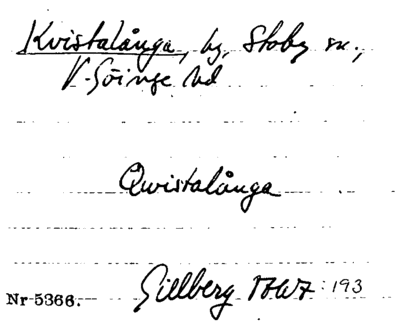 Kvistalånga, by, Stoby sn.,
V. Göinge hd
Qvistalånga
Gillberg : 193
Nr 5366.